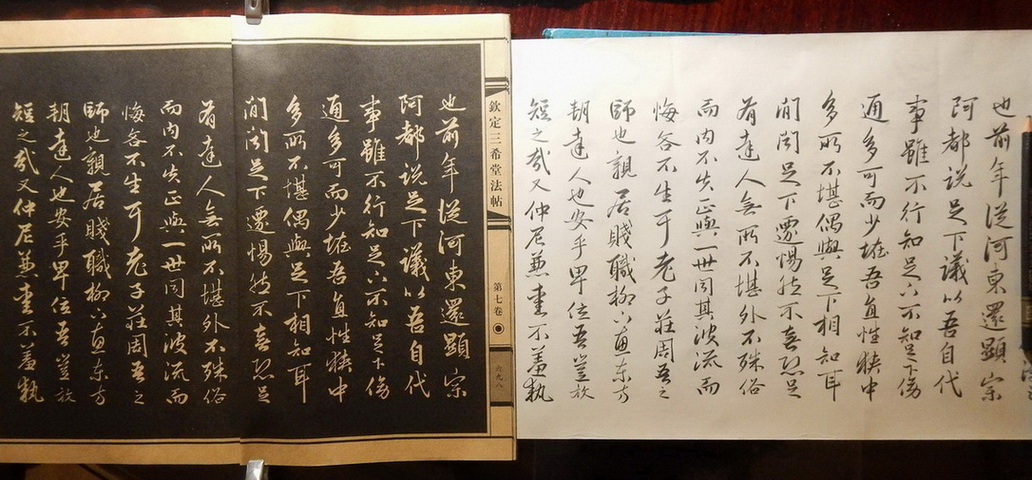 也前年從河東還顯宗
阿都說足下議以吾自代
事雖不行知足下不知足下傍
通多可而少怪吾直性狹中
多所不堪偶與足下相知耳
間聞足下遷惕然不喜恐足
有達人無所不堪外不殊俗
而內不失正與一世同其波流而
悔吝不生耳老子莊周吾之
師也親居賤職柳下惠東方
朔達人也安乎卑位吾豈敢
短之哉又仲尼兼愛不羞執
欽定三希堂法帖
第七卷
六九八
也前年從河東還顯宗
阿都說足下議以吾自代
事雖不行知足下不知足下傍
通多可而少怪吾直性狹中
多所不堪偶與足下相知耳
間聞足下遷惕然不喜恐足
有達人無所不堪外不殊俗
而內不失正與一世同其波流而
悔吝不生耳老子莊周吾之
師也親居賤職柳下惠東方
朔達人也安乎卑位吾豈敢
短之哉又仲尼兼愛不羞執